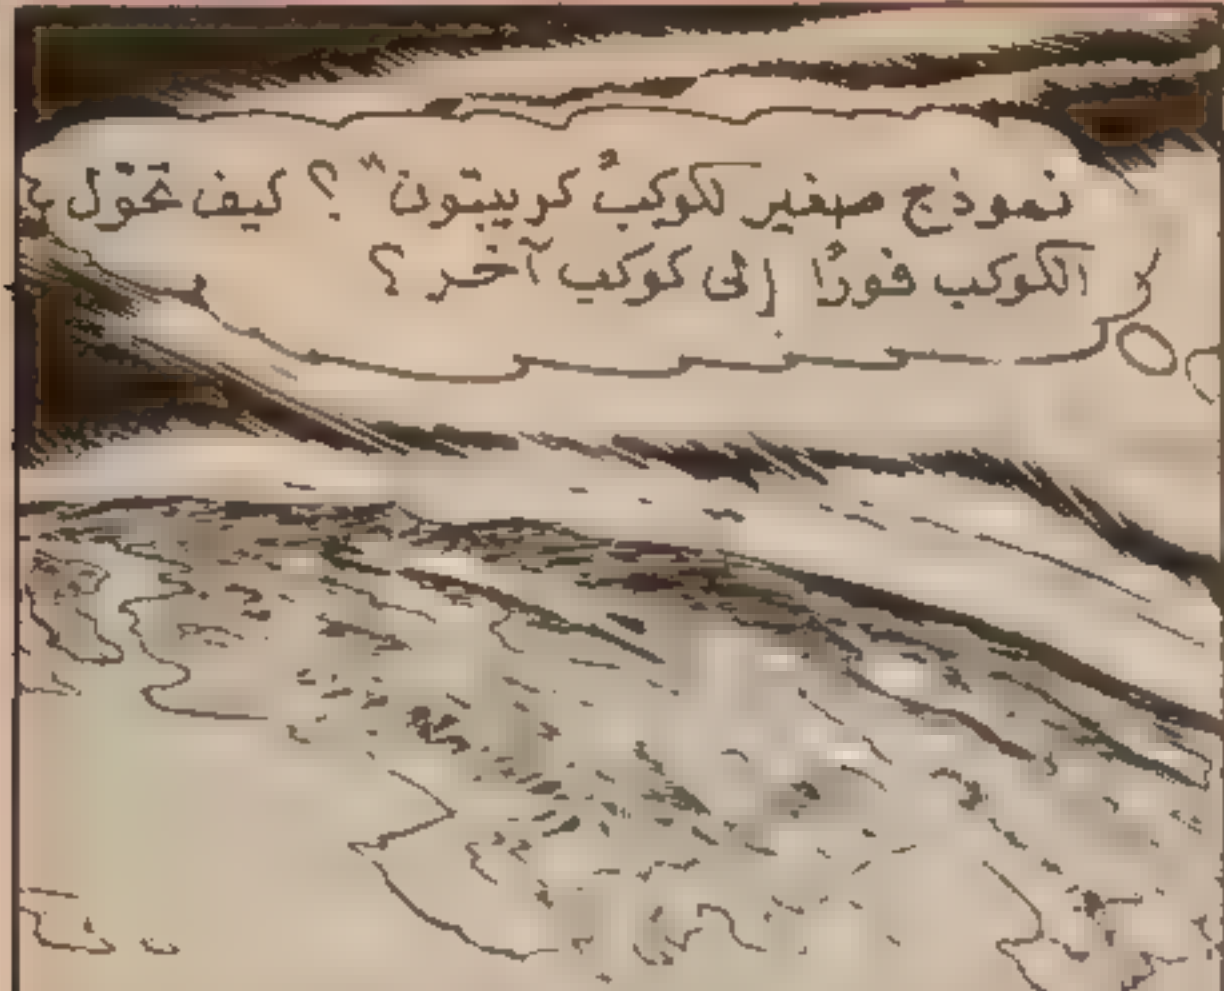 نموذج صغير لكوكبٌ كريبتون" ؟ كيف تحّول
الكوكب فورًا إلى كوكب آخر ؟